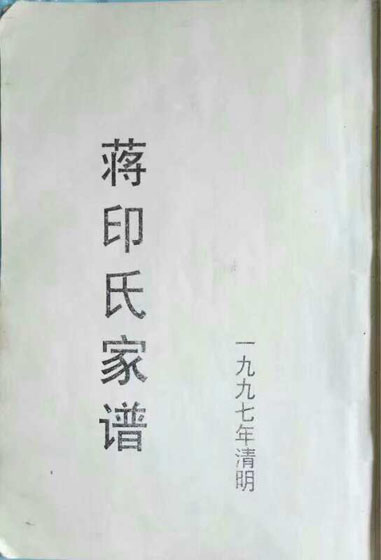 蒋印氏家谱
一九九七年清明